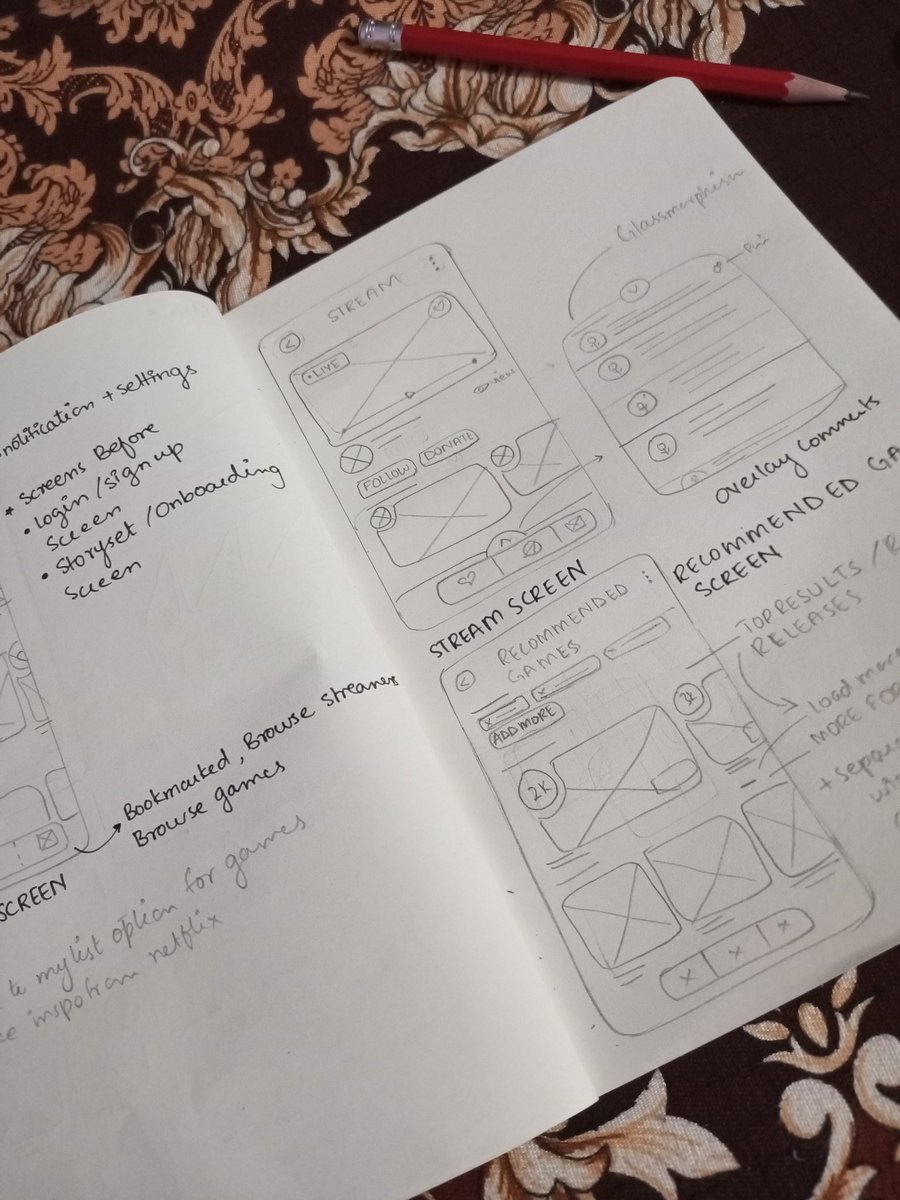 notification + settings
* Screens Before
• login / sign up
Screen
• Storyset / Onboarding
Screen
Bookmarked, Browse streamers
Browse games
SCREEN
mylist option for games
inspo from netflix
STREAM
• LIVE
view
FOLLOW
DONATE
STREAM SCREEN
Glassmorphism
Pin
overlay comments
RECOMMENDED GA
SCREEN
RECOMMENDED
GAMES
ADD MORE
2K
3K
TOP RESULTS /
RELEASES
load more
MORE FOR
+ separa